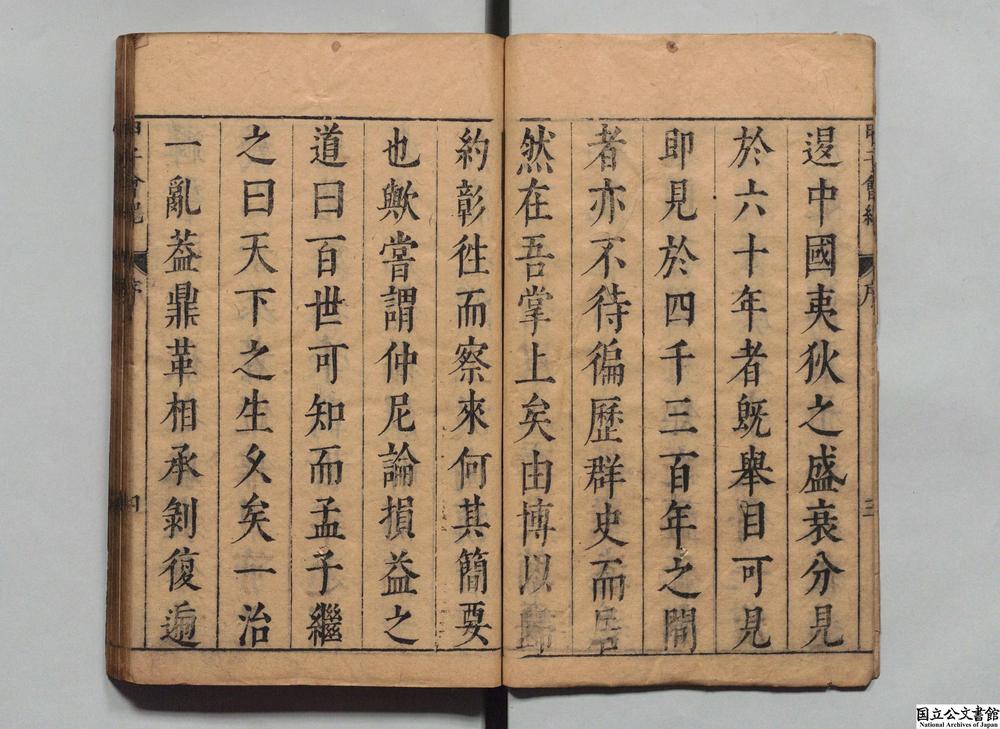 邊中國夷狄之盛衰分見
於六十年者既舉目可見
即見於四千三百年之間
者亦不待徧歷群史而居
然在吾掌上矣由博以歸
約彰徃而察來何其簡要
也歟嘗謂仲尼論損益之
道曰百世可知而孟子繼
之曰天下之生久矣一治
一亂葢鼎革相承剝復遞
序
三
序
四
国立公文書館
National Archives of Japan